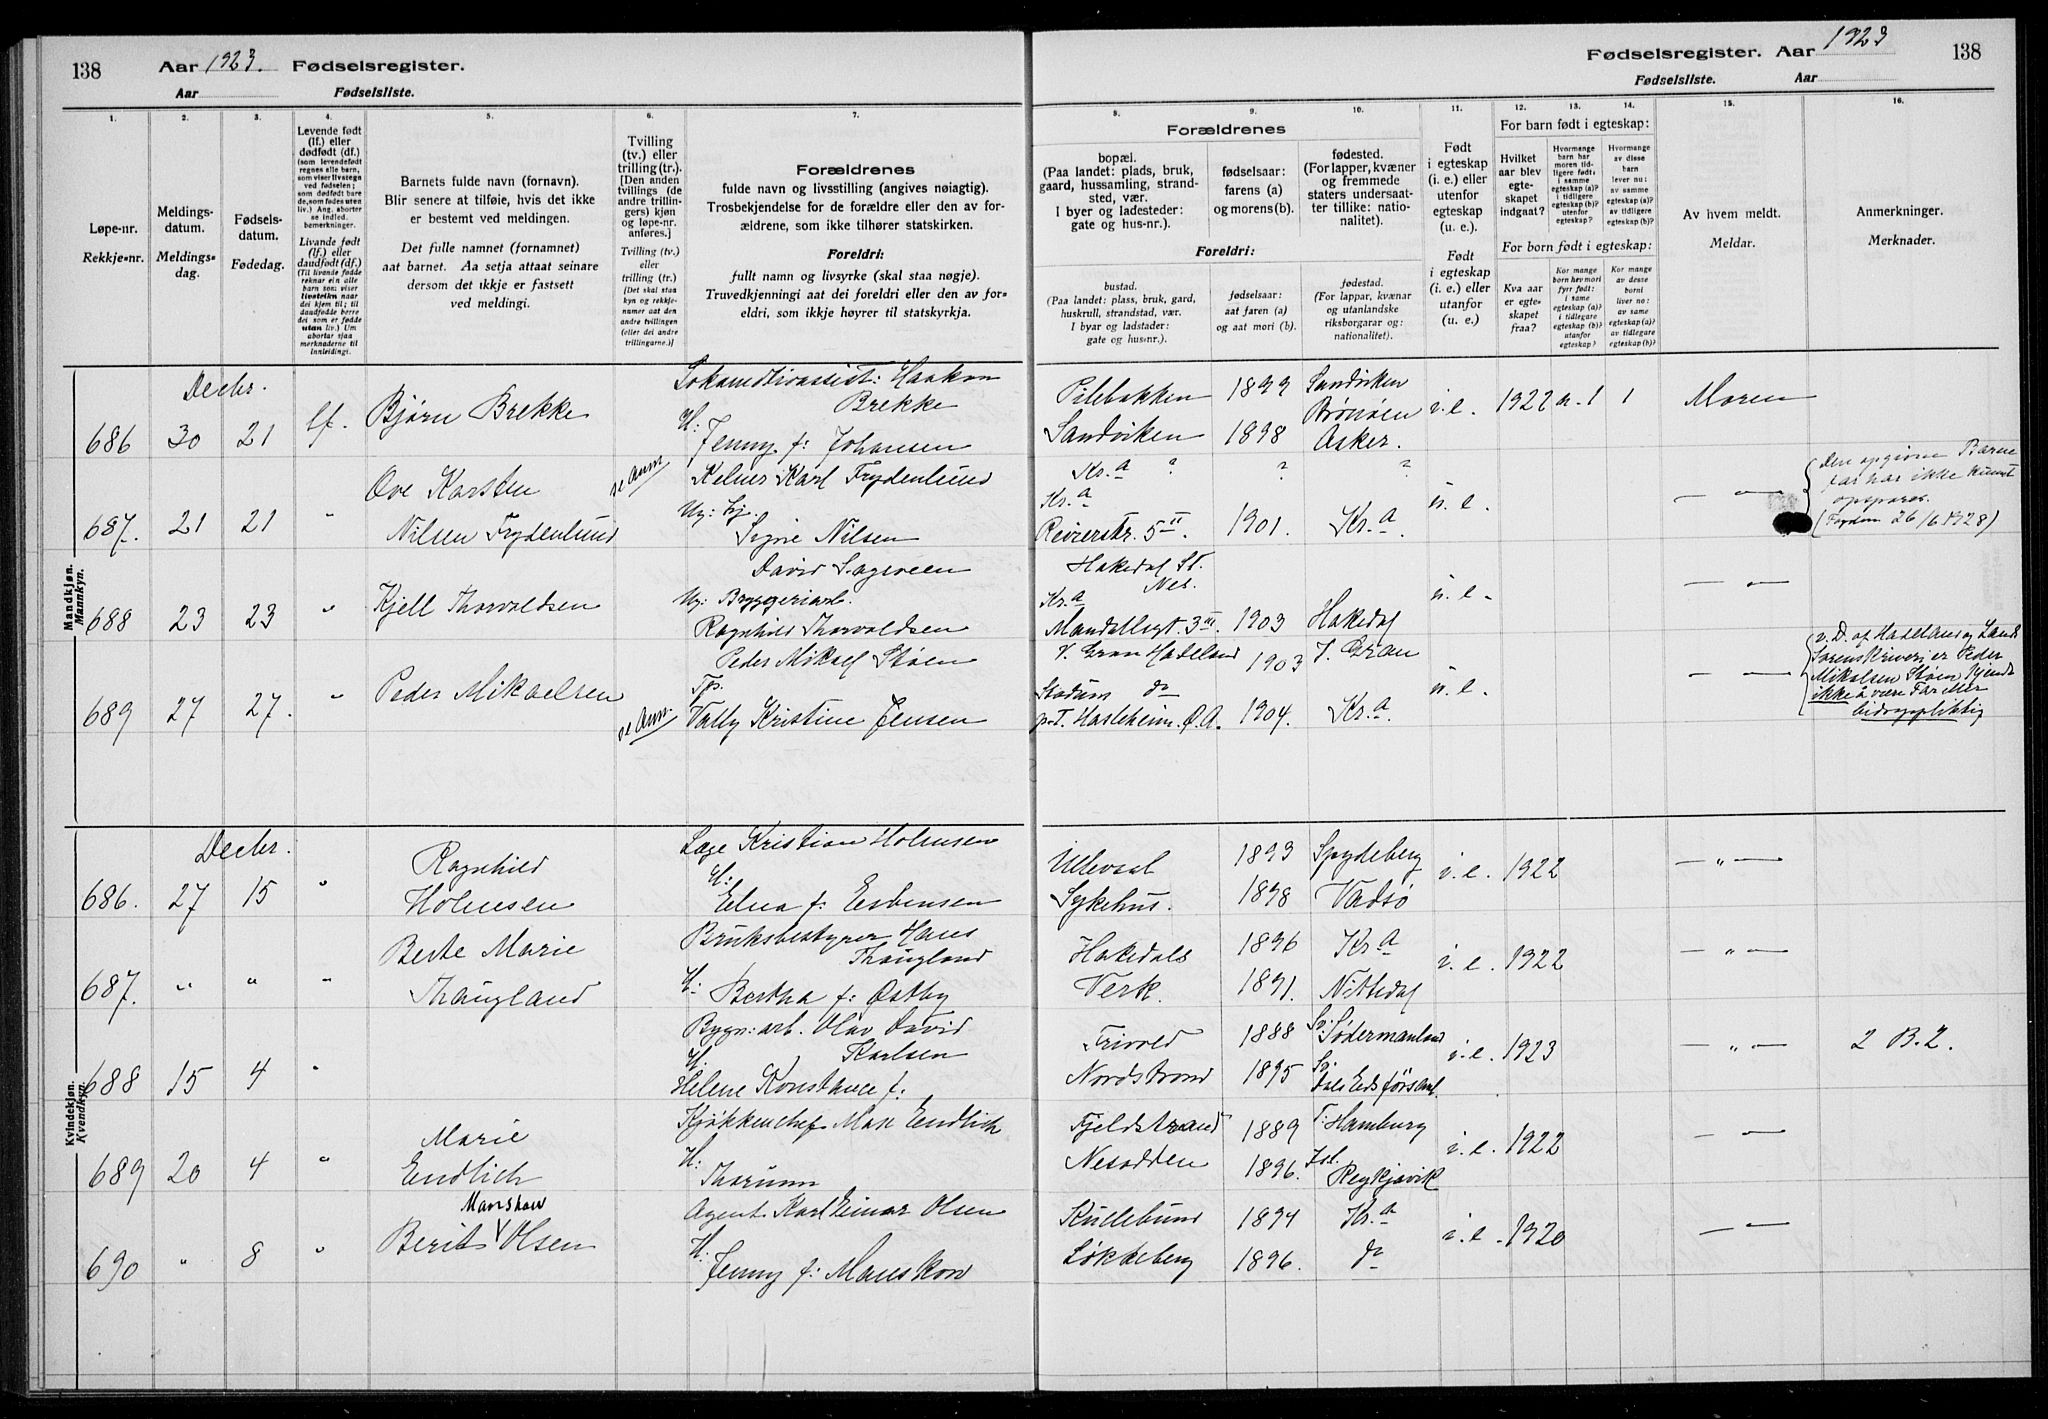 138 Aar 1923. Fødselsregister.
Aar Fødselsliste.
1923
Fødselsregister. Aar 138
Fødselsliste. Aar
1. 2. 3. 4. 5. 6. 7. 8. 9. 10. 11. 12. 13. 14. 15. 16.
Løpe-nr.
Rekkje-nr.
Meldings-
datum.
Meldings-
dag.
Fødsels-
datum.
Fødedag.
Levende født
(lf.) eller
dødfødt (df.)
(som levendefødt
regnes alle barn,
som viser livstegn
ved fødselen;
som dødfødt de
barn som fødes uten
liv.) Ang. aborter
se indled.
bemerkninger.
Livande født
(lf.) eller
daudfødt (df.)
(Til livande fødde
reknar ein alle
barn som viser
livsteikn naar
dei kjem til; til
daudfødde berre
dei som er fødde
utan liv.) Um
abortar sjaa
merknaderne til
innleidingi.
Barnets fulde navn (fornavn).
Blir senere at tilføie, hvis det ikke
er bestemt ved meldingen.
Det fulle namnet (fornamnet)
aat barnet. Aa setja attaat seinare
dersom det ikkje er fastsett
ved meldingi.
Tvilling
(tv.) eller
trilling (tr.).
[Den anden
tvillings (de
andre trillin-
gers) kjøn
og løpe-nr.
anføres.]
Tvilling (tv.)
eller
trilling (tr.)
[Det skal staa
kyn og rekkje-
numer aat den
andre tvillingen
(eller dei andre
trillingarne.)]
Forældrenes
fulde navn og livsstilling (angives nøiagtig).
Trosbekjendelse for de forældre eller den av for-
ældrene, som ikke tilhører statskirken.
Foreldri:
fullt namn og livsyrke (skal staa nøgje).
Truvedkjenningi aat dei foreldri eller den av for-
eldri, som ikkje høyrer til statskyrkja.
Forældrenes
bopæl.
(Paa landet: plads, bruk,
gaard, hussamling, strand-
sted, vær.
I byer og ladesteder:
gate og hus-nr.).
fødselsaar:
farens (a)
og morens (b).
fødested.
(For lapper, kvæner
og fremmede
staters undersaat-
ter tillike: natio-
nalitet).
Foreldri:
bustad.
(Paa landet: plass, bruk, gard,
huskrull, strandstad, vær.
I byar og ladstader:
gate og hus-nr.).
fødselsaar:
aat faren (a)
og aat mori (b).
fødestad.
(For lappar, kvænar
og utanlandske
riksborgarar og:
nationalitet).
Født
i egteskap
(i. e.) eller
utenfor
egteskap
(u. e.).
Født
i egteskap
(i. e.) eller
utanfor
egteskap
(u. e.).
For barn født i egteskap:
Hvilket
aar blev
egte-
skapet
indgaat?
Hvormange
barn har
moren tid-
ligere født:
i samme
egteskap (a)?
i tidligere
egteskap (b)?
utenfor
egteskap?
Hvormange
av disse
barn
lever nu:
av samme
egteskap (a)?
av tidligere
egteskap (b)?
For born født i egteskap:
Kva aar
er egte-
skapet
fraa?
Kor mange
born hev mori
fyrr født:
i same
egteskap (a)?
i tidlegare
egteskap (b)?
utanfor
egteskap?
Kor mange
av desse
borni
liver no:
av same
egteskap (a)?
av tidlegare
egteskap (b)?
Av hvem meldt.
Meldar.
Anmerkninger.
Merknader.
Mandkjøn.
Mannkyn.
Decbr.
686 30 21 lf. Bjørn Brekke Lokomotivassist: Haakon
Brekke
H: Jenny f: Johansen
Pilebakken 1899 Sandviken
Brønøen
Sandviken 1898 Asker. i. e. 1922 a. 1 1 Moren
687. 21 21 " Ove Karsten
Nilsen Frydenlund
se Anm
Kelner Karl Frydenlund
Ug: tj.
Signe Nilsen
Kr.a ? ? ?
Kr.a
Reierstr. 5 II. 1901. Kr.a. u. e. — " —
Den opgivne Barne
far har ikke kunnet
opspores.
26/6 1928)
688 23 23 " Kjell Thorvaldsen David Sagveen
Ug: Bryggeriarb.
Ragnhild Thorvaldsen
Hakedal St.
Nes.
Kr.a
Mandallsgt. 3 III. 1903 Hakedal u. e. — " —
689 27 27. " Peder Mikaelsen
se Anm.
Peder Mikael Støen
Tp.
Valby Kristine Jensen
V. Gran Hadeland 1903 V. Gran
Stadum do
p.T. Hasleheim. Ø.A. 1904. Kr.a. u. e. — " —
v. D. af Hadeland og Lands
Sorenskriveri er Peder
Mikalsen Støen kjendt
ikke å være Far Men
bidragspliktig
Kvindekjøn.
Kvendkyn.
Decbr.
686. 27 15 " Ragnhild
Holmsen
Læge Kristian Holmsen
H:
Elna f: Esbensen
Ullevaal 1893 Spydeberg
Sykehus. 1898 Vadsø i. e. 1922 — " —
687. " " " Berte Marie
Thaugland
Bruksbestyrer Hans
Thaugland
H: Bertha f: Østby
Hakedals 1896 Kr.a
Verk. 1891. Nittedal i. e. 1922 — " —
688 15 4 " Bygn: arb. Olav David
Karlsen
H:
Helene Konstance f:
Frivold 1888 Sv: Södermanland
Nordstrand 1895 Sv. i. e. 1923 — " — 2 B. 2.
689 20 4 " Marie
Endlich
Kjøkkenchef Max Endlich
H:
Thorunn
Fjeldstrand 1889 T: Hamburg
Nesodden 1896. Isl. Reykjavik i. e. 1922 — " —
690 " 8 " Berit Manskow Olsen
Agent Karl Einar Olsen
H:
Jenny f: Manskow
Kullebund 1894 Kr.a
Løkkeberg 1896. do i. e. 1920 — " —